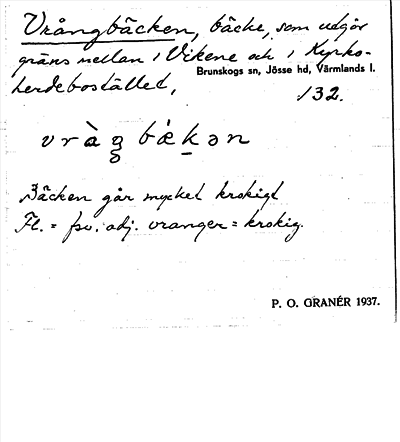 Vrångbäcken, bäck, som utgör
gräns mellan 1 Vikene och 1 Kyrko-
herdebostället,
Brunskogs sn, Jösse hd, Värmlands l.
132.
vràŋ bækən
Bäcken går mycket krokigt
Fl. = fsv. adj. vranger = krokig.
P. O. GRANÉR 1937.